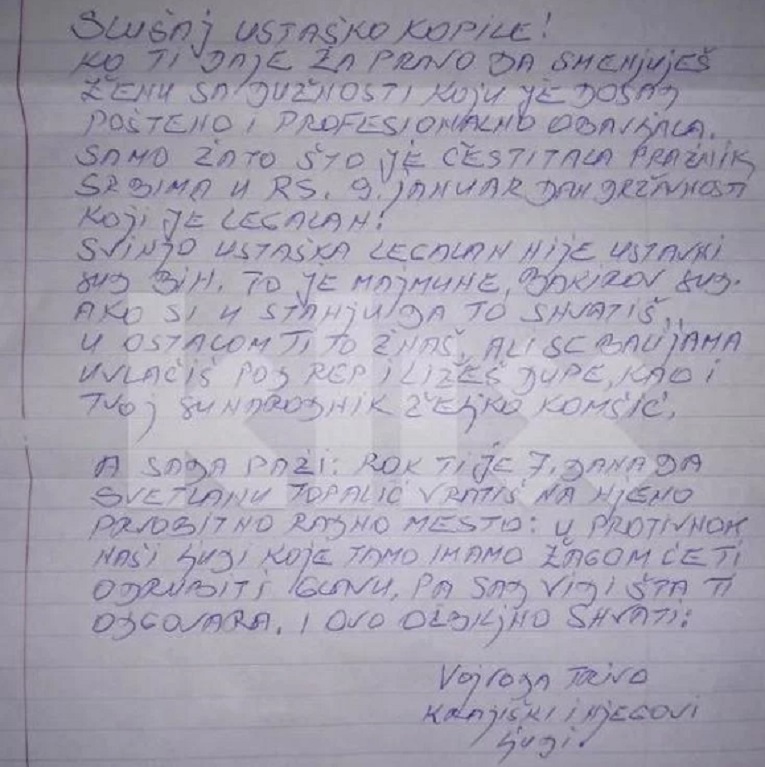 SLUŠAJ USTAŠKO KOPILE!
KO TI DAJE ZA PRAVO DA SMENJUJEŠ
ŽENU SA DUŽNOSTI KOJU JE DOSAD
POŠTENO I PROFESIONALNO OBAVLJALA.
SAMO ZATO ŠTO JE ČESTITALA PRAZNIK
SRBIMA U RS. 9. JANUAR DAN DRŽAVNOSTI
KOJI JE LEGALAN!
SVINJO USTAŠKA LEGALAN NIJE USTAVNI
SUD BIH. TO JE MAJMUNE, BAKIROV SUD.
AKO SI U STANJU DA TO SHVATIŠ.
U OSTALOM TI TO ZNAŠ, ALI SE BALIJAMA
UVLAČIŠ POD REP I LIŽEŠ DUPE, KAO I
TVOJ SUNARODNIK ŽELJKO KOMŠIĆ.
A SADA PAZI: ROK TI JE 7. DANA DA
SVETLANU TOPALIĆ VRATIŠ NA NJENO
PRVOBITNO RADNO MESTO: U PROTIVNOM
NAŠI LJUDI KOJE TAMO IMAMO ŽAGOM ĆE TI
ODRUBITI GLAVU, PA SAD VIDI ŠTA TI
ODGOVARA. I OVO OZBILJNO SHVATI:
VOJVODA TRIVO
KRAJIŠKI I NJEGOVI
LJUDI.
klix